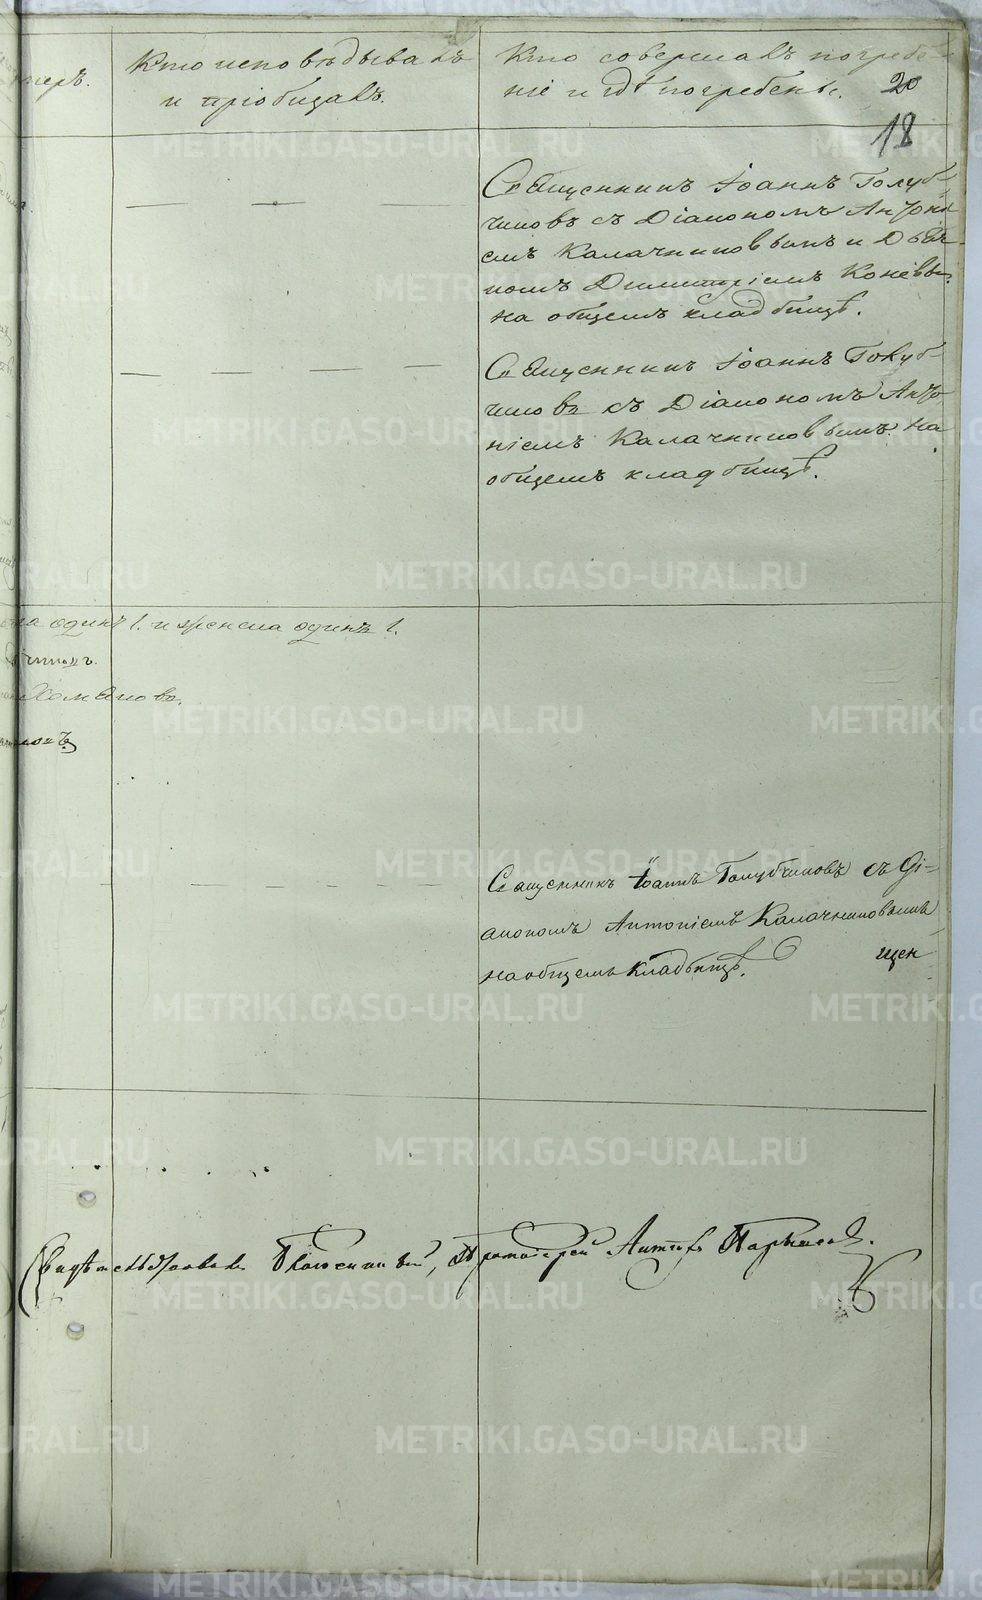 меръ.
Кто исповѣдывалъ
и пріобщалъ.
Кто совершалъ погребе-
ніе и гдѣ погребены.
20
18
Священникъ Іоаннъ Голуб-
чиковъ съ Діакономъ Антоні
емъ Калачниковымъ и Дьяч-
комъ Димитріемъ Коневы
на общемъ кладбищѣ.
Священникъ Іоаннъ Голуб-
чиковъ съ Діакономъ Анто
ніемъ Калачниковымъ на
общемъ кладбищѣ.
одинъ 1. и женска одинъ 1.
Священникъ Іоаннъ Голубчиковъ съ Ді-
акономъ Антоніемъ Калачниковымъ
на общемъ кладбищѣ.
щен
Свидѣтельствовалъ Благочинный, Протоіерей
METRIKI.GASO-URAL.RU